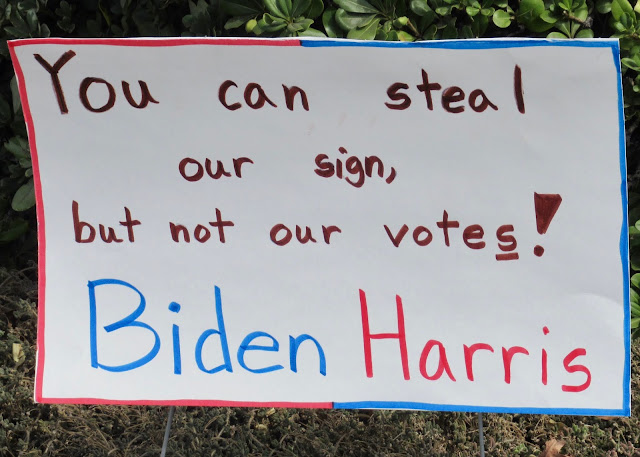 You can steal
our sign,
but not our votes!
Biden Harris